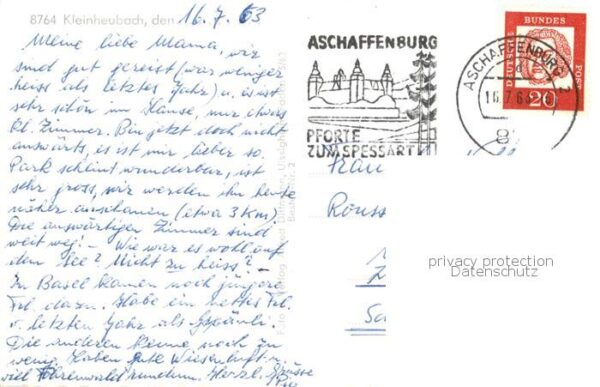 8764 Kleinheubach, den 16.7.63
Meine liebe Mama, wir
sind gut gereist (war weniger
heiss als letztes Jahr) u. es ist
sehr schön im Hause, nur etwas
kl. Zimmer. Bin jetzt doch nicht
auswärts, es ist mir lieber so.
Park scheint wunderbar, ist
sehr gross, wir werden ihn heute
näher anschauen (etwa 3 km).
Die auswärtigen Zimmer sind
weit weg! – Wie war es wohl auf
dem See? Nicht zu heiss? –
In Basel kamen noch jüngere
Frl. dazu. Habe ein nettes Frl.
v. letzten Jahr als
Die anderen kenne noch zu
wenig. Haben gute Wiesenluft u.
viel Föhrenwald rundum. Herzl. Grüsse
ASCHAFFENBURG
PFORTE
ZUM SPESSART
ASCHAFFENBURG 2
DEUTSCHE
BUNDES
POST
20
Frau
privacy protection
Datenschutz